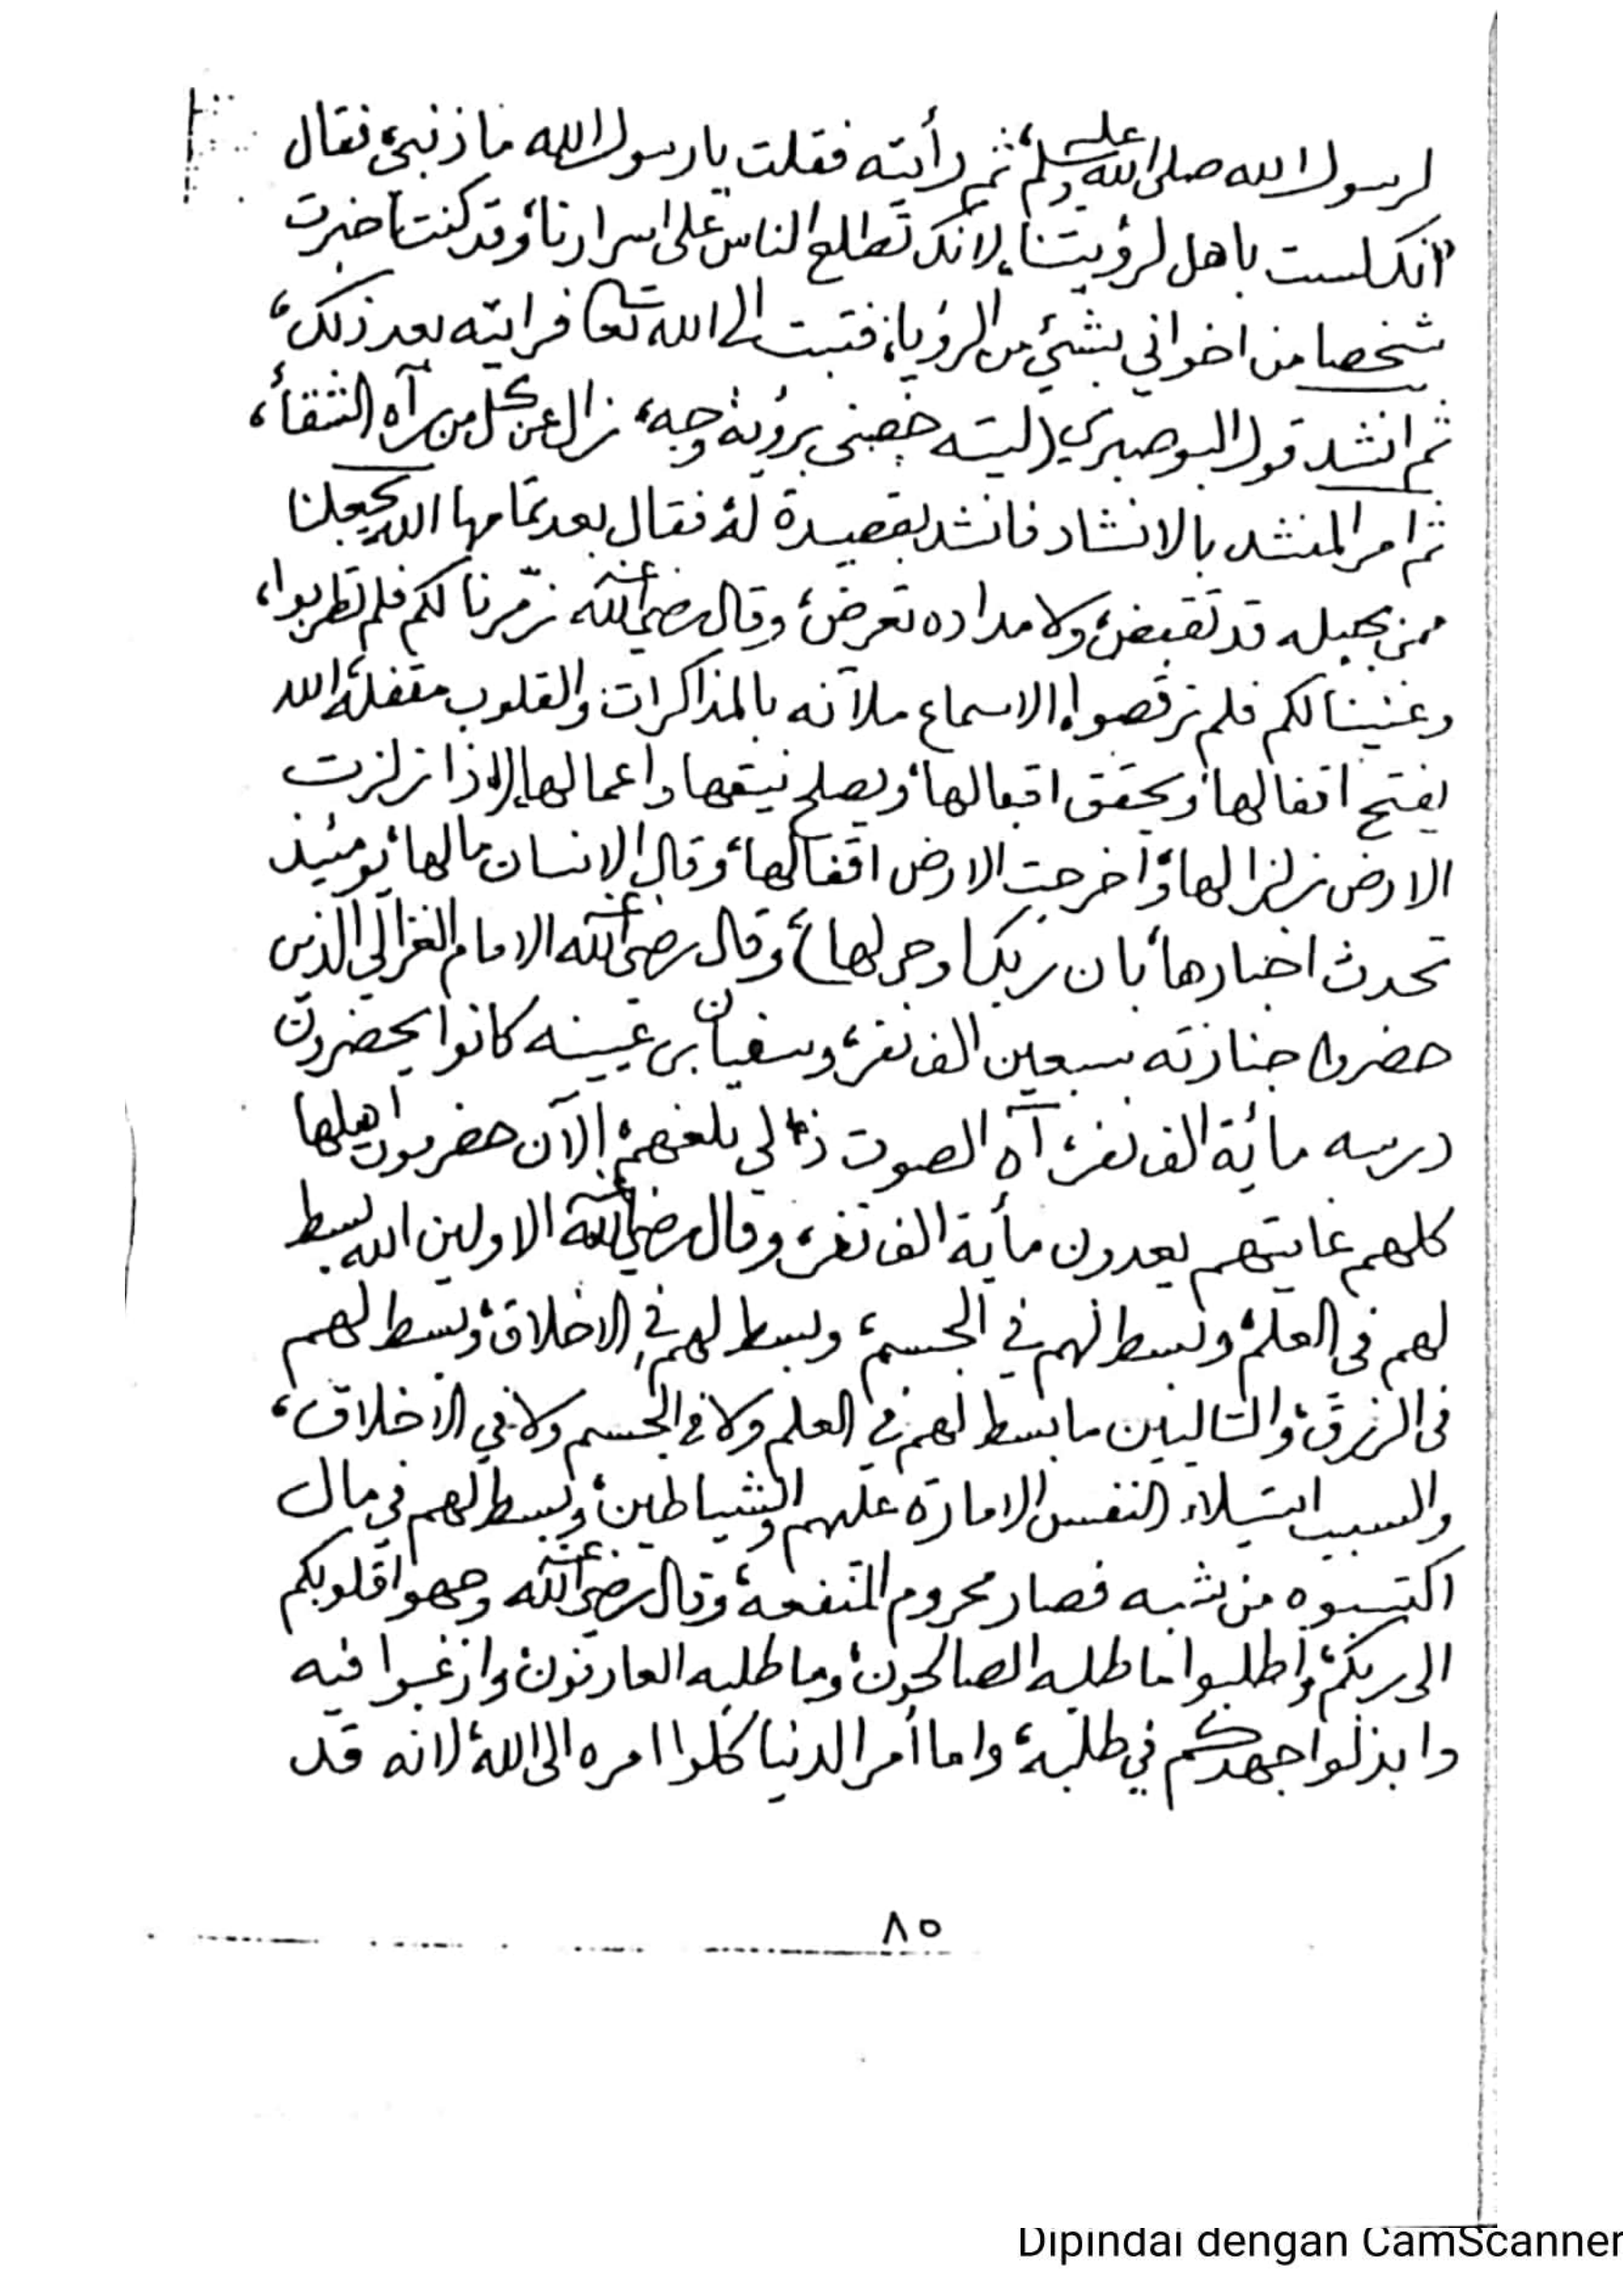 لرسول الله صلى الله عليه وسلم، ثم رأيته فقلت يا رسول الله ما ذنبي، فقال
انك لست باهل لرؤيتنا، لانك تطلع الناس على اسرارنا، وقد كنت أخبرت
شخصا من اخواني بشيئ من الرؤيا، فتبت الى الله تعا فرايته بعد ذلك،
ثم انشد قول البوصيري (ليته خصني برؤية وجه، زال عن كل من رآه الشقأ،
ثم امر المنشد بالانشاد فانشد بقصيدة له، فقال بعد تمامها الله يجعلنا
ممن بحبله قد تقبض، ولا مداده تعرض، وقال رضي الله عنه زمّرنا لكم فلم تطربوا،
وغنينا لكم فلم ترقصوا، الاسماع ملآنه بالمذاكرات، والقلوب مقفلة، الله
يفتح اقفالها، ويحقق اقبالها، ويصلح نيتها واعمالها، (اذا زلزلت
الارض زلزالها، وأخرجت الارض اقفالها، وقال الانسان مالها، يومئيذ
تحدث اخبارها، بان ربك اوحى لها)، وقال رضي الله عنه الامام الغزالي الذين
حضروا جنازته سبعين الف نفر، وسفيان بن عيينه كانوا يحضرون
درسه مائة الف نفر، آه الصوت ذا لي بلغهم، الآن حضرموت اهلها
كلهم غايتهم يعدون مأية الف نفر، وقال رضي الله عنه الاولين الله بسط
لهم في العلم، وبسط لهم في الجسم، وبسط لهم في الاخلاق، وبسط لهم
في الرزق، والتاليين ما بسط لهم في العلم ولا في الجسم ولا في الاخلاق،
والسبب استيلاء النفس الامارة عليهم والشياطين، وبسط لهم في مال
اكتسبوه من شبه فصار محروم المنفعة، وقال رضي الله عنه وجهوا قلوبكم
الى ربكم، واطلبوا ما طلبه الصالحون، وما طلبه العارفون، وارغبوا فيه
وابذلوا جهدكم في طلبه، واما أمر الدنيا كلوا امره الى الله، لانه قد
٨٥
Dipindai dengan CamScanner